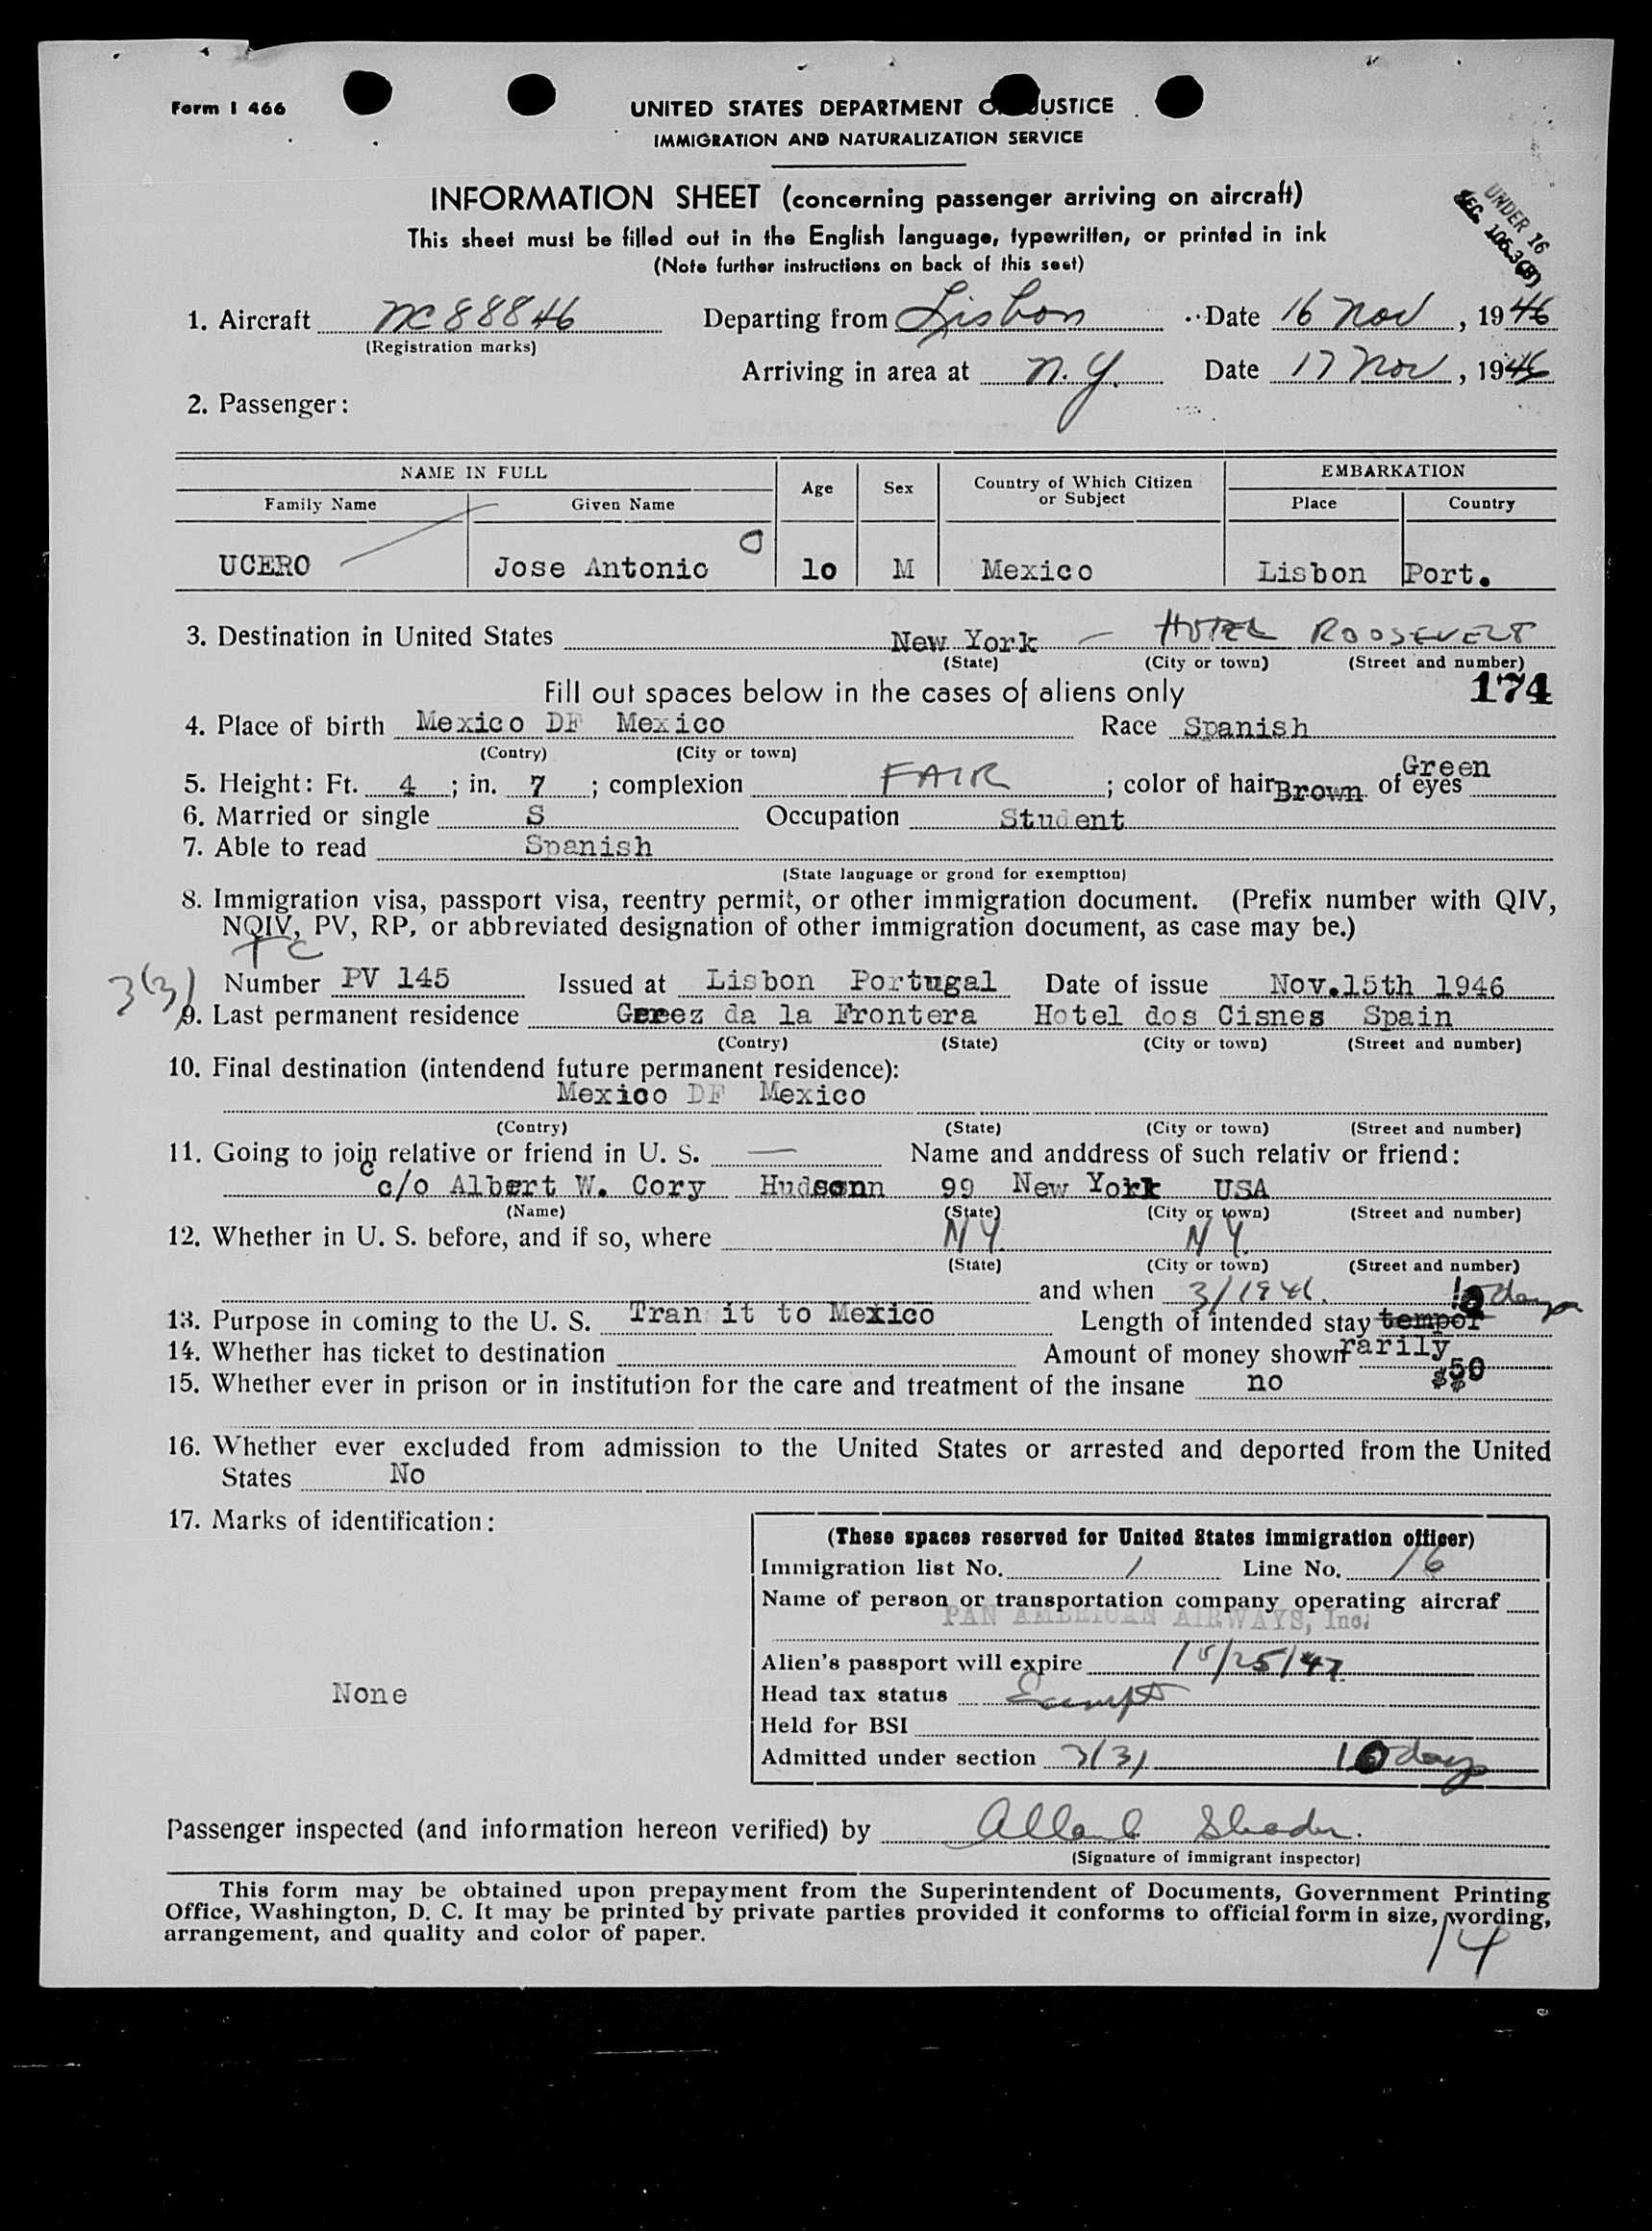 Form I 466
UNITED STATES DEPARTMENT O JUSTICE
IMMIGRATION AND NATURALIZATION SERVICE
INFORMATION SHEET (concerning passenger arriving on aircraft)
This sheet must be filled out in the English language, typewritten, or printed in ink
(Note further instructions on back of this seet)
UNDER 16
SEC. 106.3(B)
1. Aircraft NC 88846 Departing from Lisbon Date 16 Nov, 1946
(Registration marks)
Arriving in area at N.Y. Date 17 Nov, 1946
2. Passenger:
NAME IN FULL Age Sex Country of Which Citizen or Subject EMBARKATION
Family Name Given Name Place Country
UCERO Jose Antonio 10 M Mexico Lisbon Port.
3. Destination in United States New York — HOTEL ROOSEVELT
(State) (City or town) (Street and number)
Fill out spaces below in the cases of aliens only 174
4. Place of birth Mexico DF Mexico Race Spanish
(Contry) (City or town)
5. Height: Ft. 4 ; in. 7 ; complexion FAIR ; color of hair Brown of eyes Green
6. Married or single S Occupation Student
7. Able to read Spanish
(State language or grond for exemption)
8. Immigration visa, passport visa, reentry permit, or other immigration document. (Prefix number with QIV,
NQIV, PV, RP, or abbreviated designation of other immigration document, as case may be.)
TC
3(3) Number PV 145 Issued at Lisbon Portugal Date of issue Nov.15th 1946
9. Last permanent residence Gerez da la Frontera Hotel dos Cisnes Spain
(Contry) (State) (City or town) (Street and number)
10. Final destination (intendend future permanent residence):
Mexico DF Mexico
(Contry) (State) (City or town) (Street and number)
11. Going to join relative or friend in U. S. — Name and anddress of such relativ or friend:
c/o Albert W. Cory Hudsonn 99 New York USA
(Name) (State) (City or town) (Street and number)
12. Whether in U. S. before, and if so, where NY. NY.
(State) (City or town) (Street and number)
and when 3/1946. 10 days
13. Purpose in coming to the U. S. Tran it to Mexico Length of intended stay tempor
14. Whether has ticket to destination Amount of money shown rarily
15. Whether ever in prison or in institution for the care and treatment of the insane no $50
16. Whether ever excluded from admission to the United States or arrested and deported from the United
States No
17. Marks of identification:
None
(These spaces reserved for United States immigration officer)
Immigration list No. 1 Line No. 16
Name of person or transportation company operating aircraf
PAN AMERICAN AIRWAYS, Inc.
Alien's passport will expire 10/25/47
Head tax status Exempt
Held for BSI
Admitted under section 3(3) 10 days
Passenger inspected (and information hereon verified) by
(Signature of immigrant inspector)
This form may be obtained upon prepayment from the Superintendent of Documents, Government Printing
Office, Washington, D. C. It may be printed by private parties provided it conforms to official form in size, wording,
arrangement, and quality and color of paper.
14